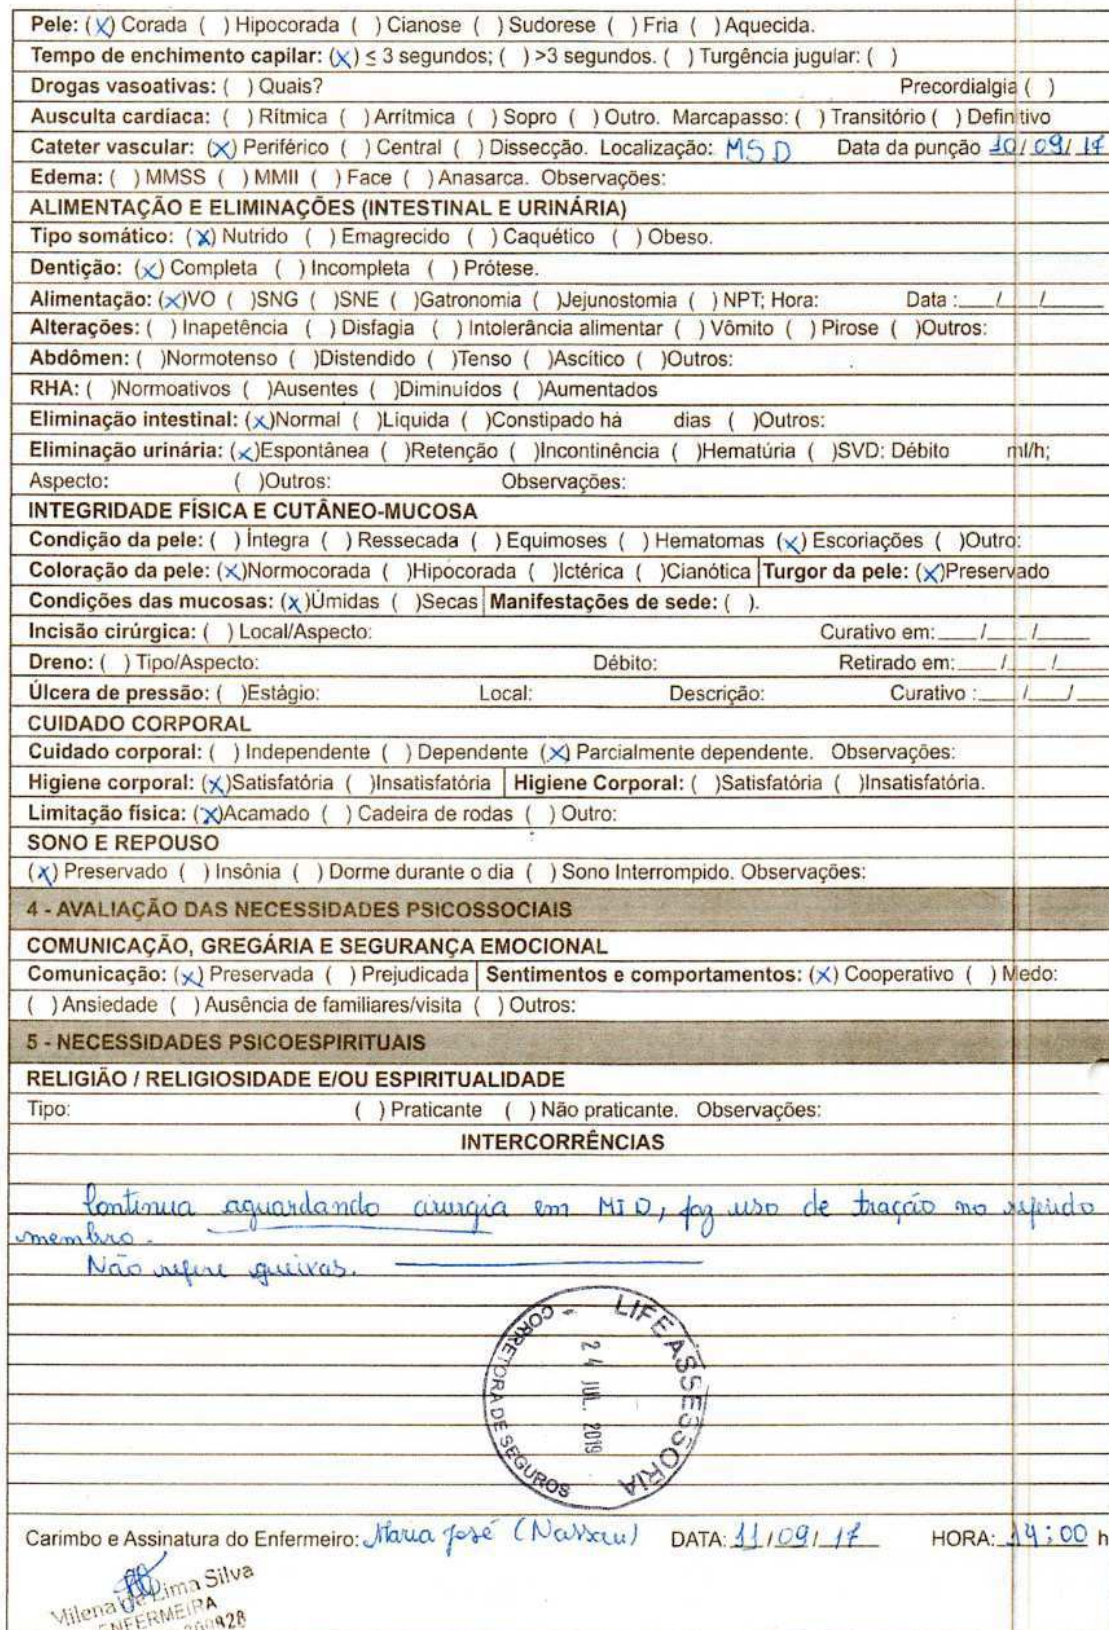 Pele: (X) Corada ( ) Hipocorada ( ) Cianose ( ) Sudorese ( ) Fria ( ) Aquecida.
Tempo de enchimento capilar: (X) ≤ 3 segundos; ( ) >3 segundos. ( ) Turgência jugular: ( )
Drogas vasoativas: ( ) Quais? Precordialgia ( )
Ausculta cardíaca: ( ) Rítmica ( ) Arrítmica ( ) Sopro ( ) Outro. Marcapasso: ( ) Transitório ( ) Definitivo
Cateter vascular: (X) Periférico ( ) Central ( ) Dissecção. Localização: MSD Data da punção 10/09/17
Edema: ( ) MMSS ( ) MMII ( ) Face ( ) Anasarca. Observações:
ALIMENTAÇÃO E ELIMINAÇÕES (INTESTINAL E URINÁRIA)
Tipo somático: (X) Nutrido ( ) Emagrecido ( ) Caquético ( ) Obeso.
Dentição: (X) Completa ( ) Incompleta ( ) Prótese.
Alimentação: (X)VO ( )SNG ( )SNE ( )Gatronomia ( )Jejunostomia ( ) NPT; Hora: Data :___/___/___
Alterações: ( ) Inapetência ( ) Disfagia ( ) Intolerância alimentar ( ) Vômito ( ) Pirose ( )Outros:
Abdômen: ( )Normotenso ( )Distendido ( )Tenso ( )Ascítico ( )Outros:
RHA: ( )Normoativos ( )Ausentes ( )Diminuídos ( )Aumentados
Eliminação intestinal: (X)Normal ( )Líquida ( )Constipado há dias ( )Outros:
Eliminação urinária: (X)Espontânea ( )Retenção ( )Incontinência ( )Hematúria ( )SVD: Débito ml/h;
Aspecto: ( )Outros: Observações:
INTEGRIDADE FÍSICA E CUTÂNEO-MUCOSA
Condição da pele: ( ) Íntegra ( ) Ressecada ( ) Equimoses ( ) Hematomas (X) Escoriações ( )Outro:
Coloração da pele: (X)Normocorada ( )Hipocorada ( )Ictérica ( )Cianótica Turgor da pele: (X)Preservado
Condições das mucosas: (X)Úmidas ( )Secas Manifestações de sede: ( ).
Incisão cirúrgica: ( ) Local/Aspecto: Curativo em:___/___/___
Dreno: ( ) Tipo/Aspecto: Débito: Retirado em:___/___/___
Úlcera de pressão: ( )Estágio: Local: Descrição: Curativo :___/___/___
CUIDADO CORPORAL
Cuidado corporal: ( ) Independente ( ) Dependente (X) Parcialmente dependente. Observações:
Higiene corporal: (X)Satisfatória ( )Insatisfatória Higiene Corporal: ( )Satisfatória ( )Insatisfatória.
Limitação física: (X)Acamado ( ) Cadeira de rodas ( ) Outro:
SONO E REPOUSO
(X) Preservado ( ) Insônia ( ) Dorme durante o dia ( ) Sono Interrompido. Observações:
4 - AVALIAÇÃO DAS NECESSIDADES PSICOSSOCIAIS
COMUNICAÇÃO, GREGÁRIA E SEGURANÇA EMOCIONAL
Comunicação: (X) Preservada ( ) Prejudicada Sentimentos e comportamentos: (X) Cooperativo ( ) Medo:
( ) Ansiedade ( ) Ausência de familiares/visita ( ) Outros:
5 - NECESSIDADES PSICOESPIRITUAIS
RELIGIÃO / RELIGIOSIDADE E/OU ESPIRITUALIDADE
Tipo: ( ) Praticante ( ) Não praticante. Observações:
INTERCORRÊNCIAS
Continua aguardando cirurgia em MID, faz uso de tração no referido
membro.
Não refere queixas.
LIFEASSESSORIA
24 JUL. 2019
CORRETORA DE SEGUROS
Carimbo e Assinatura do Enfermeiro: Maria José (Nassau) DATA: 11/09/17 HORA: 14:00 h
Milena de Lima Silva
ENFERMEIRA